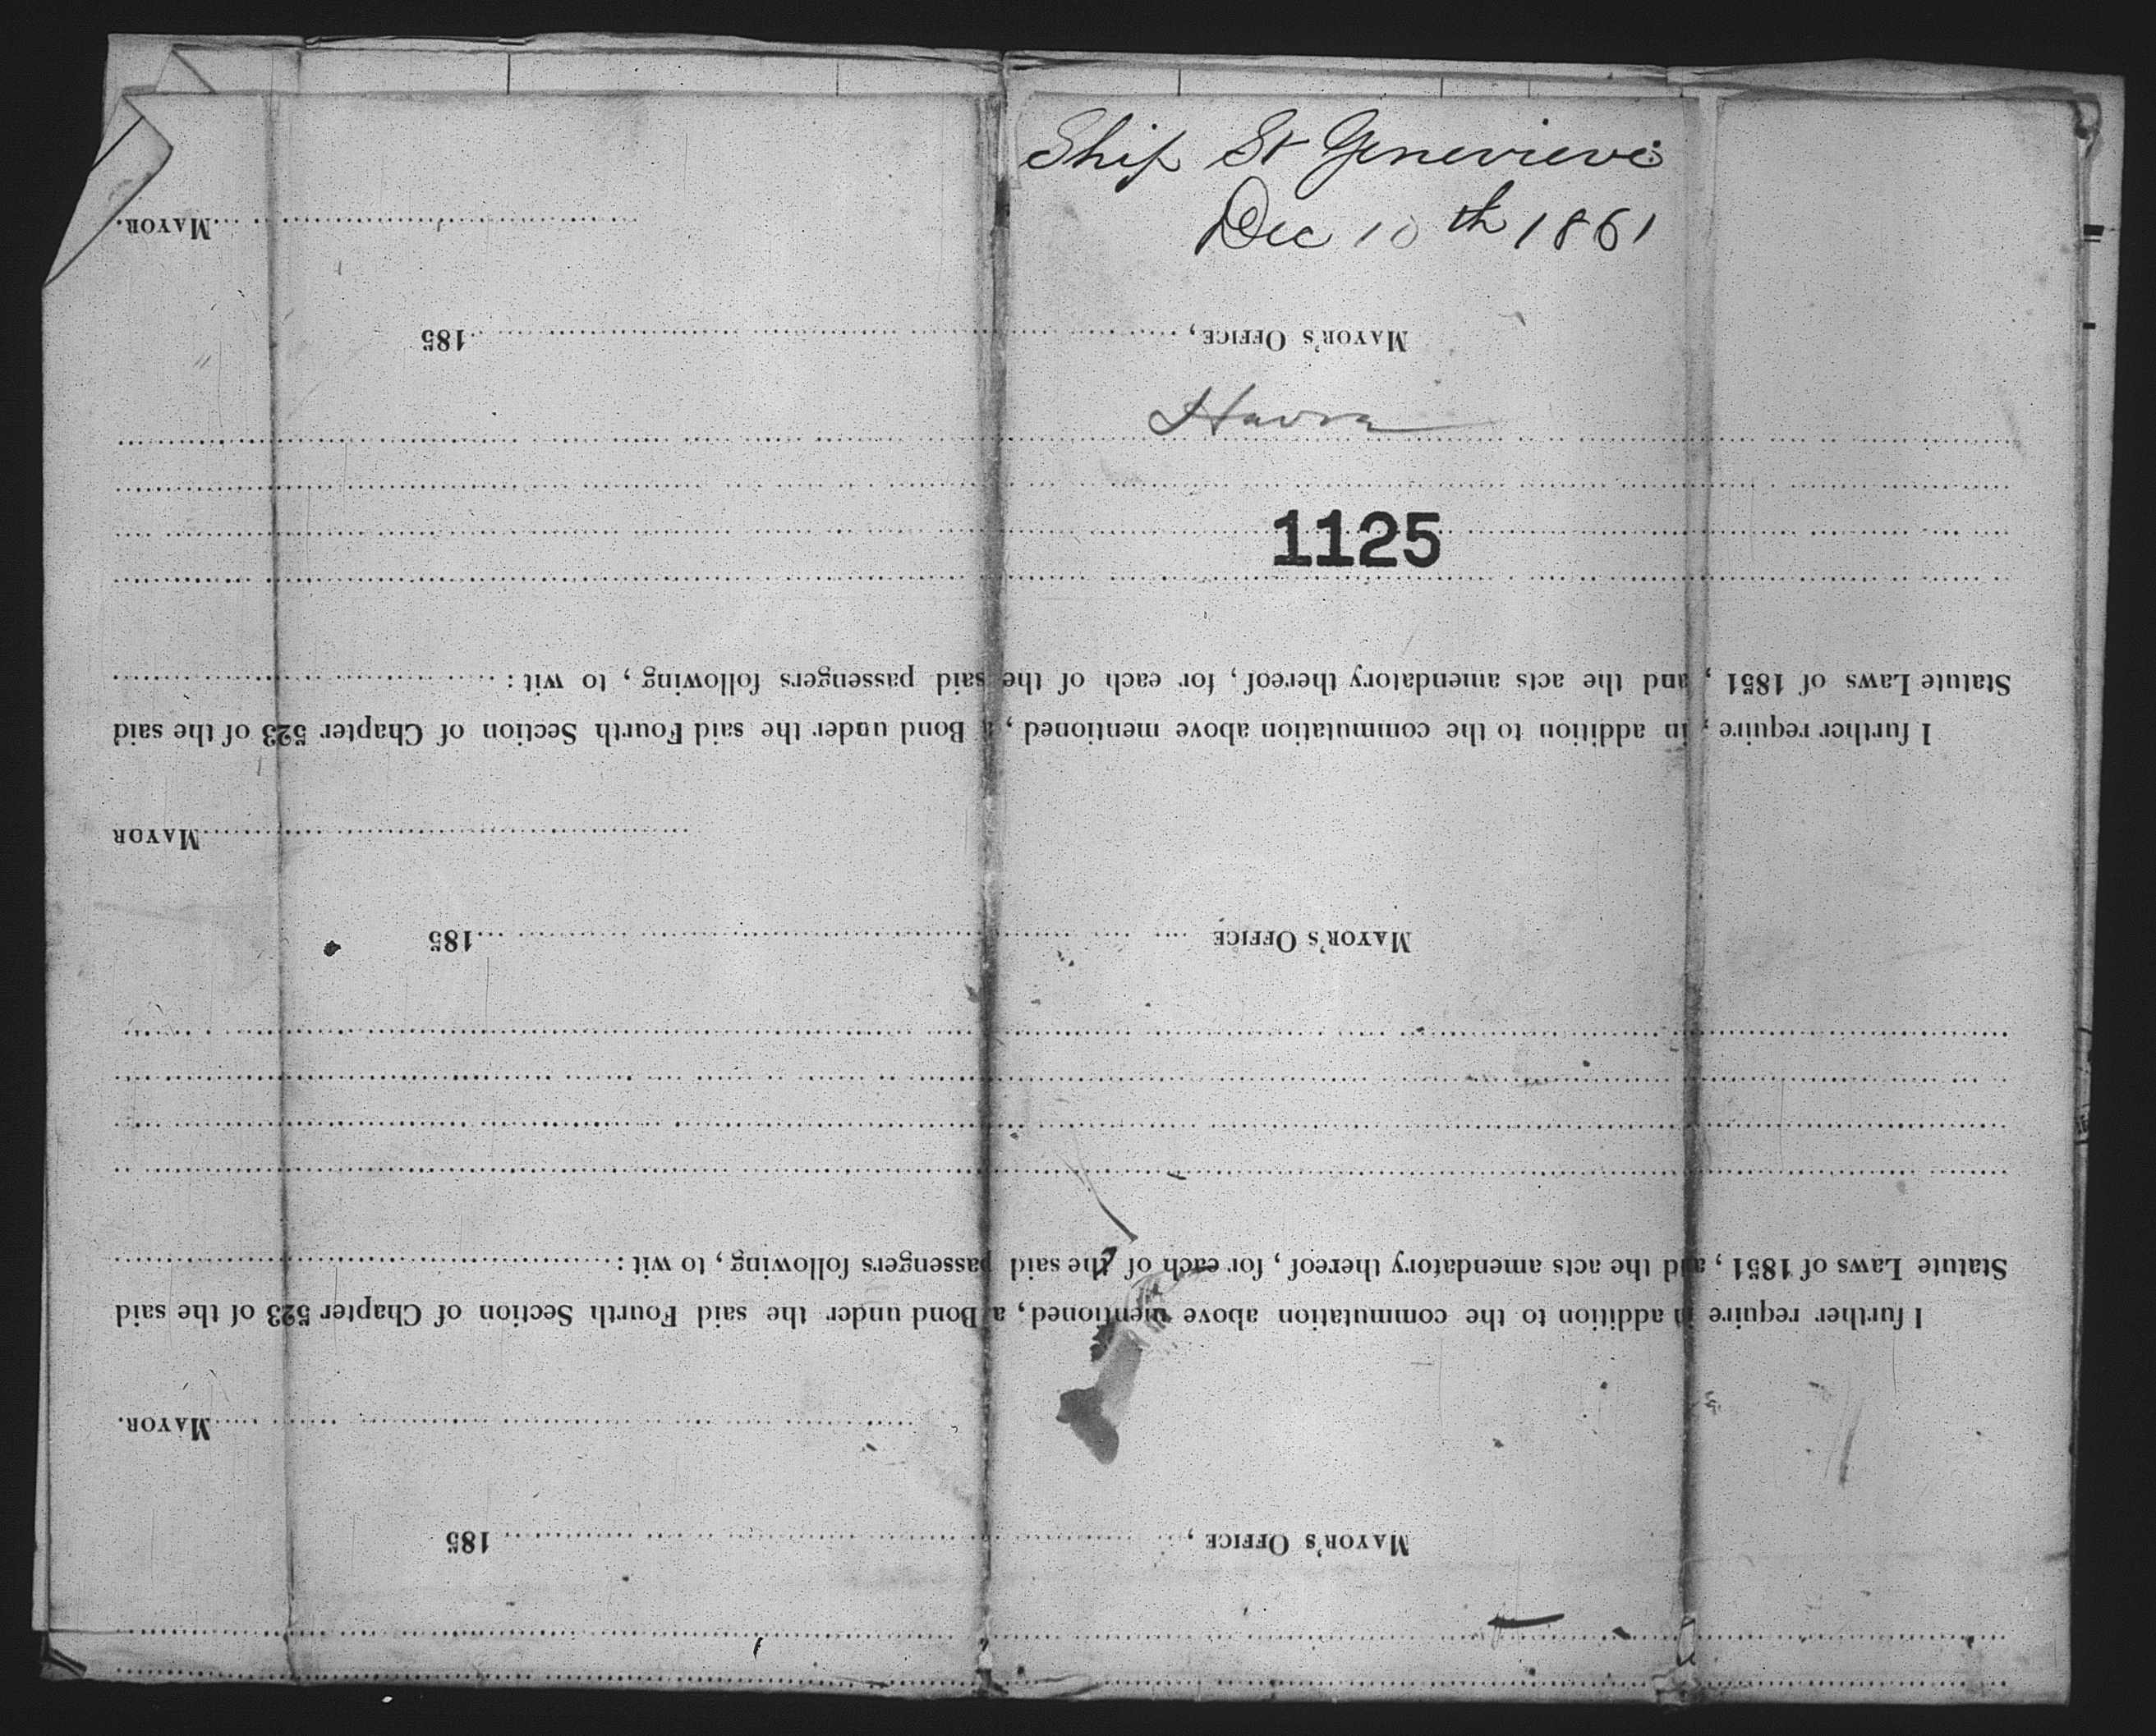 Ship St Genevieve
Dec 10th 1861
Havre
1125
MAYOR'S OFFICE, 185
MAYOR.
I further require in addition to the commutation above mentioned, a Bond under the said Fourth Section of Chapter 523 of the said
Statute Laws of 1851, and the acts amendatory thereof, for each of the said passengers following, to wit:
MAYOR'S OFFICE 185
MAYOR
I further require, in addition to the commutation above mentioned, a Bond under the said Fourth Section of Chapter 523 of the said
Statute Laws of 1851, and the acts amendatory thereof, for each of the said passengers following, to wit:
MAYOR'S OFFICE, 185
MAYOR.